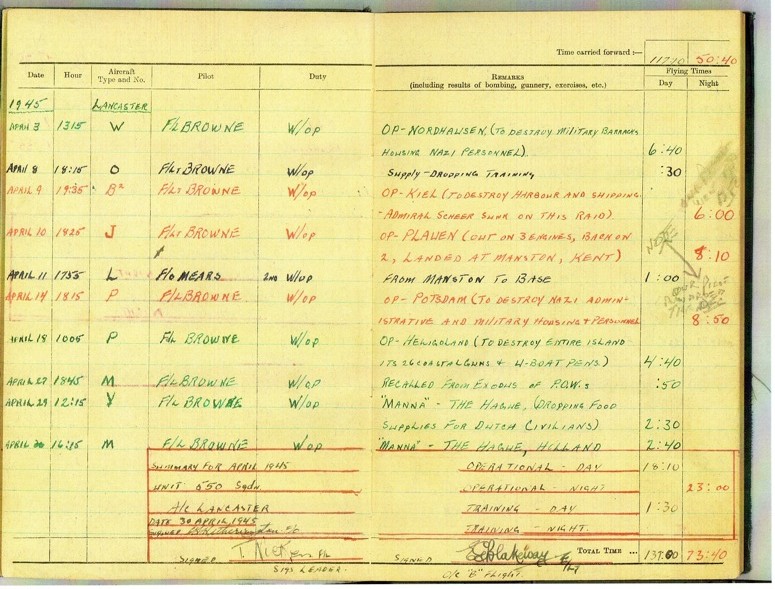 Time carried forward :— 117.10 50:40
Date Hour Aircraft Type and No. Pilot Duty REMARKS (including results of bombing, gunnery, exercises, etc.) Flying Times Day Night
1945 LANCASTER
APRIL 3 1315 W F/L BROWNE W/OP OP- NORDHAUSEN, (TO DESTROY MILITARY BARRACKS
HOUSING NAZI PERSONNEL) 6:40
APRIL 8 18:15 O F/LT BROWNE W/OP SUPPLY-DROPPING TRAINING :30
APRIL 9 19:35 B² F/LT BROWNE W/OP OP- KIEL (TO DESTROY HARBOUR AND SHIPPING.
-ADMIRAL SCHEER SUNK ON THIS RAID). 6:00
APRIL 10 1825 J F/LT BROWNE W/OP OP- PLAUEN (OUT ON 3 ENGINES, BACK ON
2, LANDED AT MANSTON, KENT) 8:10
APRIL 11 1755 L F/O MEARS 2ND W/OP FROM MANSTON TO BASE 1:00
APRIL 14 1815 P F/L BROWNE W/OP OP- POTSDAM (TO DESTROY NAZI ADMIN-
ISTRATIVE AND MILITARY HOUSING & PERSONNEL 8:50
APRIL 18 1005 P F/L BROWNE W/OP OP- HELIGOLAND (TO DESTROY ENTIRE ISLAND
ITS 26 COASTAL GUNS & U-BOAT PENS) 4:40
APRIL 27 1845 M F/L BROWNE W/OP RECALLED FROM EXODUS OF P.O.W.s :50
APRIL 29 12:15 Y F/L BROWNE W/OP "MANNA" - THE HAGUE, (DROPPING FOOD
SUPPLIES FOR DUTCH CIVILIANS) 2:30
APRIL 30 16:15 M F/L BROWNE W/OP "MANNA" - THE HAGUE, HOLLAND 2:40
SUMMARY FOR APRIL 1945 OPERATIONAL - DAY 18:10
UNIT 550 Sqdn OPERATIONAL - NIGHT 23:00
A/C LANCASTER TRAINING - DAY 1:30
DATE 30 APRIL 1945 TRAINING - NIGHT.
SIGNED
SIGNED F/L SIGNED TOTAL TIME ... 137:00 73:40
SIGS LEADER. O/C "B" FLIGHT.
NOTE